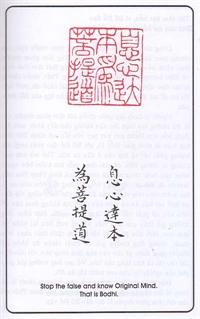 息心達本
為菩提道
息心達本
為菩提道
Stop the false and know Original Mind.
That is Bodhi.